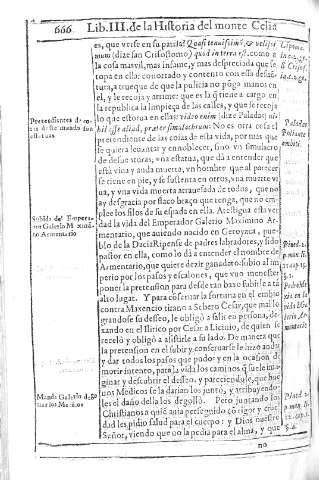 666 Lib.III. de la Historia del monte Celia
es, que verse en su patria? Quasi tenuissimũ, & velissi-
mum (dize san Crisostomo) quod in terra est. como a
la cosa mas vil, mas infame, y mas despreciada que se
topa en ella: contortado y contento con esta desdẽ-
tura, a trueque de que la policia no põga manos en
el, y le recoja y arrime: que es la q̃ tiene a cargo en
la republica la limpieza de las calles, y que se recoja
lo que estorua en ellas: video enim (dize Paladas) ni-
hil esse aliud, præter simulachrum. No es otra cosa el
pretendiente de las cosas de esta vida, por mas que
se quiera leuantar y ennoblecer, sino vn simulacro
de desuenturas, vna estatua, que dà a entender que
està viua y anda muerta, vn hombre que al parecer
se tiene en pie, y se sustenta en otros, vna muerte vi-
ua, y vna vida muerta arrastrada de todos, que no
ay desgracia por flaco braço que tenga, que no em-
plee los filos de su espada en ella. Atestigua esta ver
dad la vida del Emperador Galerio Maximino Ar-
mentario, que auiendo nacido en
blo de la Dacia Ripense de padres labradores, y sido
pastor en ella, como lo dà a entender el nombre de
Armentario, que quiere dezir ganadero: subio al im
perio por los pasos y escalones, que vno
poner la pretension para desde tan baxo subirle a tã
alto lugar. Y para cõseruar la fortuna en el embio
contra Maxencio tirano a Seuero Cesar, que mal lo-
grandose su desseo, le obligò a salir en persona, de-
xando en el Ilirico por Cesar a Licinio, de quien se
recelò y obligò a asistirle a su lado. De manera que
la pretension en el subir y conseruarse le hizo andar
y dar todos los pasos que pudo: y en la ocasion de
morir intento, para la vida los caminos q̃ suele ima
ginar y descubrir el desseo, y pareciendole, que sus
nos Medicos se la darian los juntò, y atribuyendo-
les el daño della los degollò. Pero juntando los
Christianos a quiẽ auia perseguido cõ rigor y cruel
dad les pidio salud para el cuerpo: y Dios nuestro
Señor, viendo que no la pedia para el alma, y que
no
Pretendientes de co-
sas de ste mundo son
estatuas.
Subida del Empera-
dor Galerio Maximi
no Armentario
Manda Galerio dego
llar los Medicos
Paladas